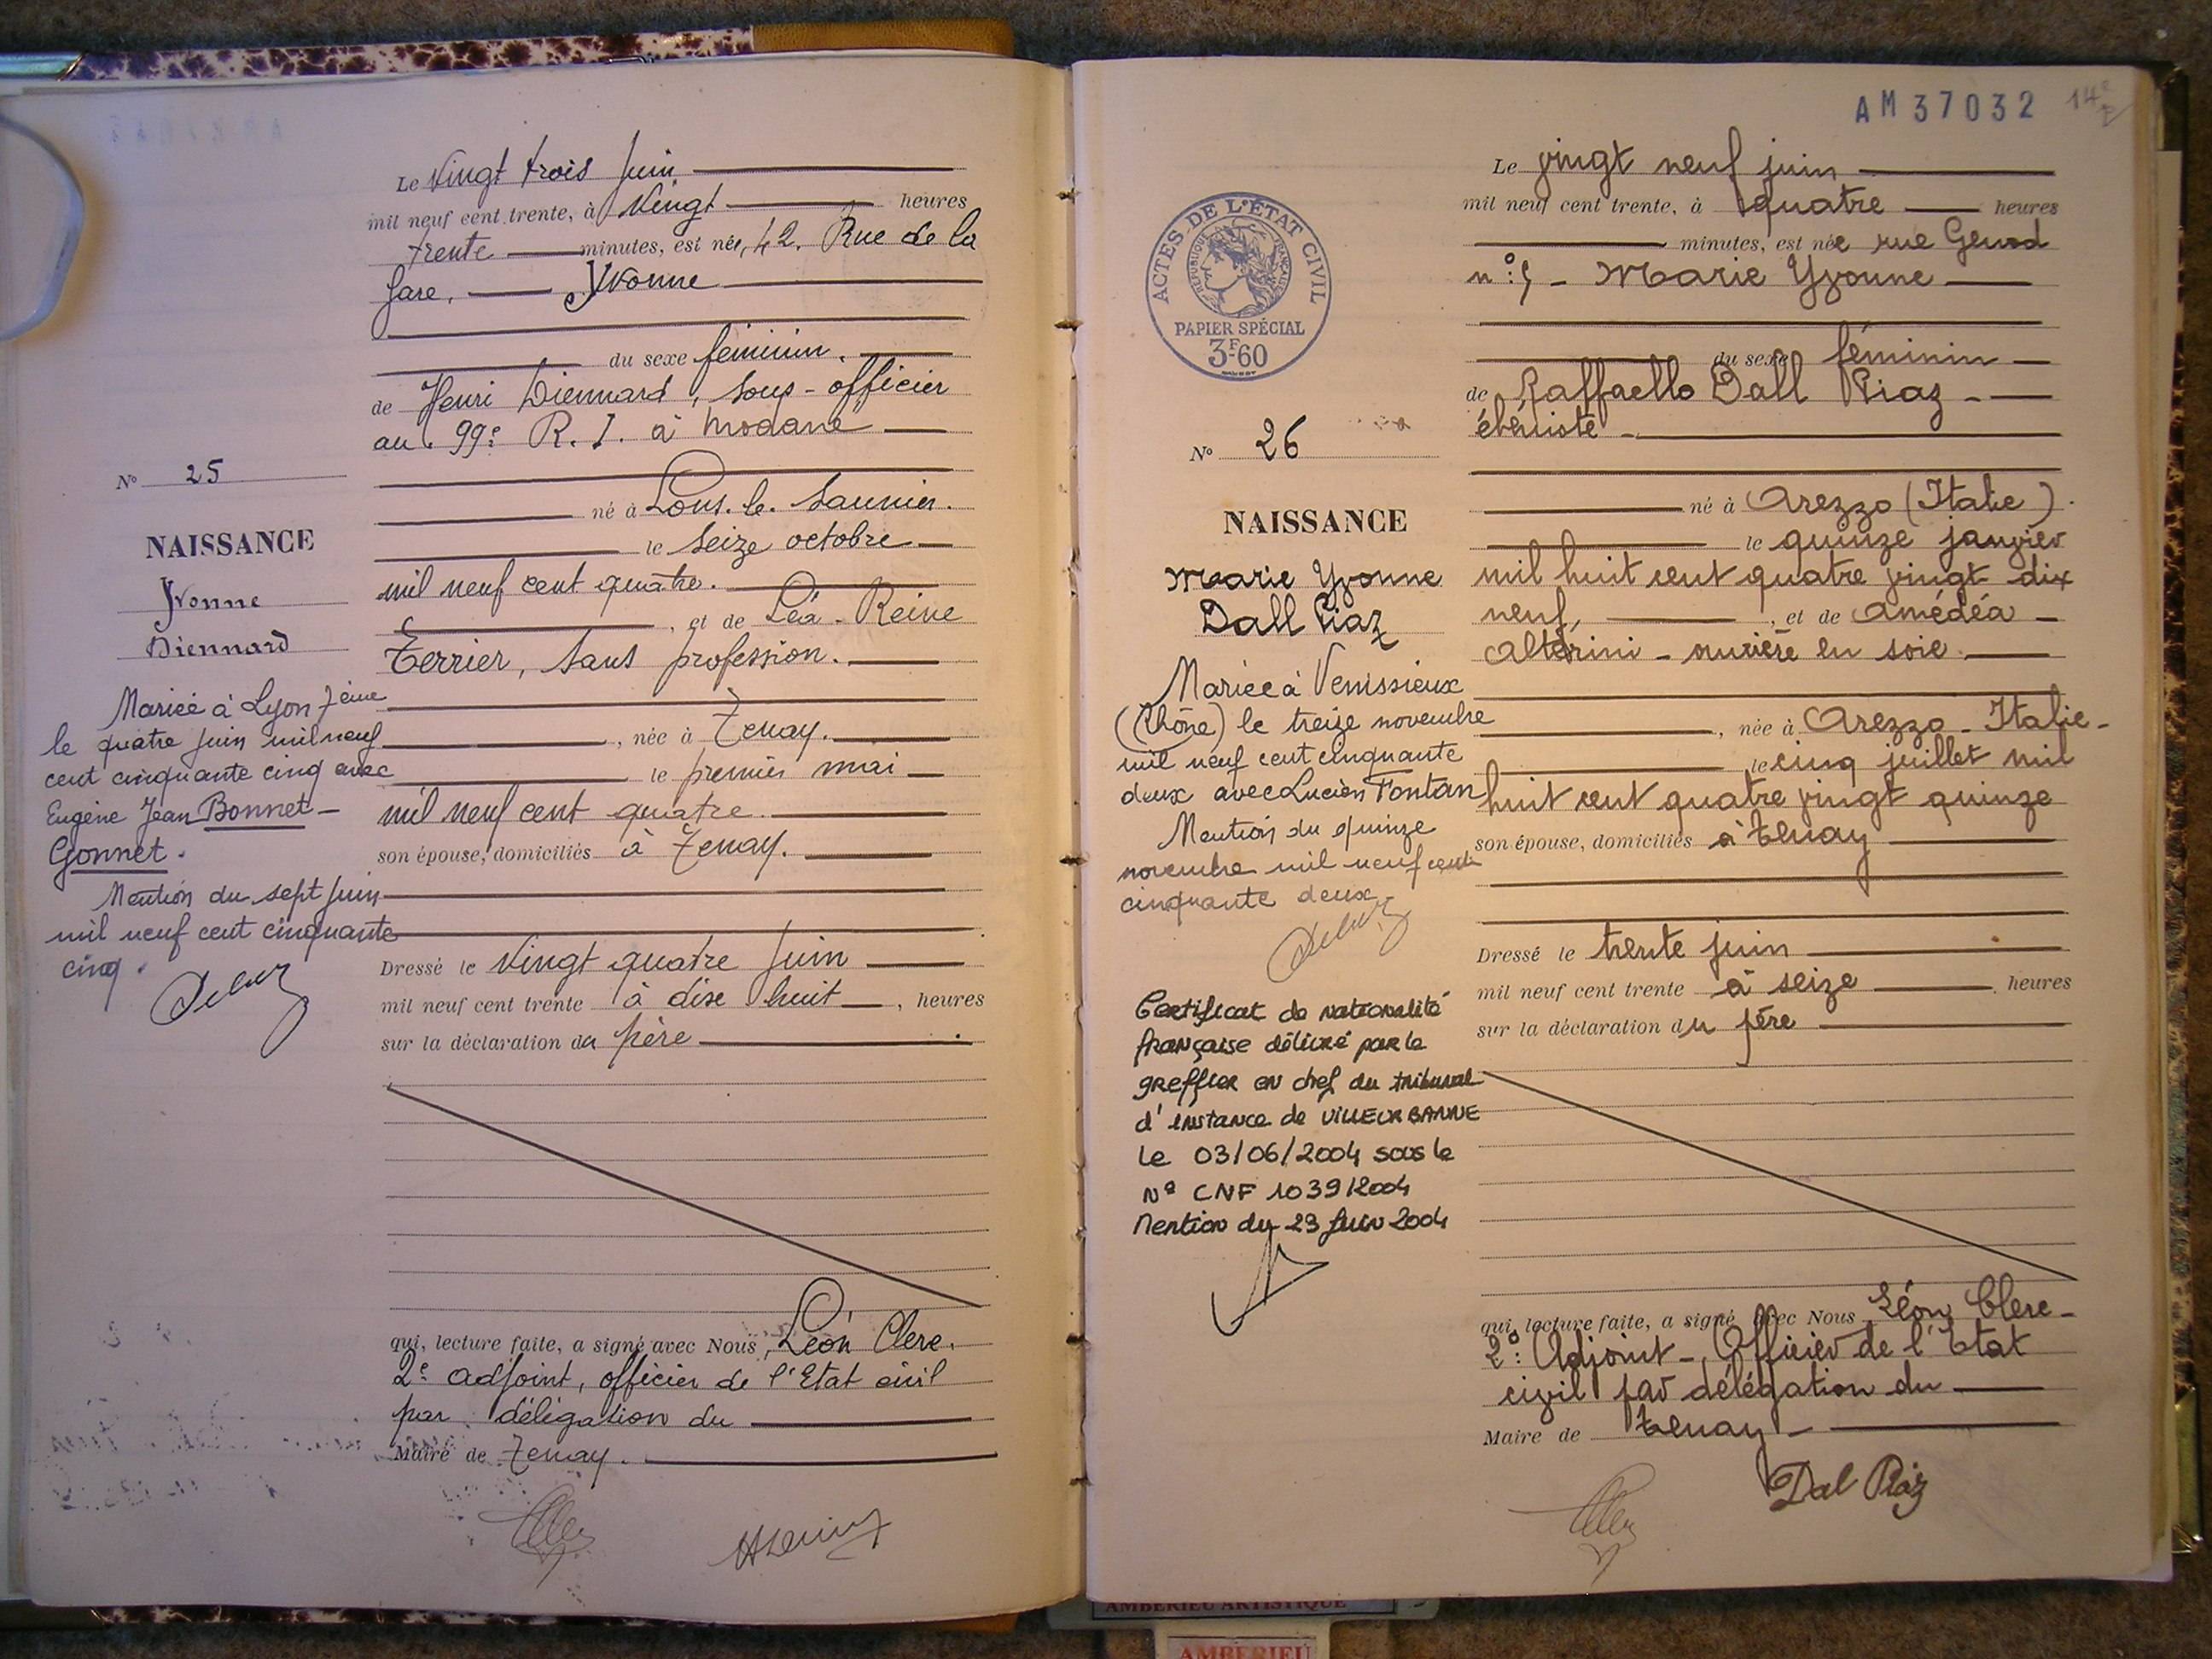 Le Vingt trois Juin
mil neuf cent trente, à Vingt heures
trente minutes, est née, 42, Rue de la
Gare, Yvonne
du sexe féminin.
de Henri Diennard, sous-officier
au 99e R. I. à Modane
né à Lons-le-Saunier.
le seize octobre
mil neuf cent quatre.
, et de Léa-Reine
Terrier, sans profession.
, née à Tenay.
le premier mai
mil neuf cent quatre.
son épouse, domiciliés à Tenay.
Dressé le Vingt quatre Juin
mil neuf cent trente à dix huit, heures
sur la déclaration du père
qui, lecture faite, a signé avec Nous, Léon Clerc,
2e adjoint, officier de l'Etat civil
par délégation du
Maire de Tenay.
No 25
NAISSANCE
Yvonne
Diennard
Mariée à Lyon 7ème
le quatre juin mil neuf
cent cinquante cinq avec
Eugène Jean Bonnet-
Gonnet.
Mention du sept juin
mil neuf cent cinquante
cinq.
AM37032
14e
Le vingt neuf juin
mil neuf cent trente, à quatre heures
minutes, est née rue Genod
n° - Marie Yvonne
du sexe féminin
de Raffaello Dall Piaz
ébéniste
né à Arezzo (Italie).
le quinze janvier
mil huit cent quatre vingt dix
neuf, , et de Amédéa
- ouvière en soie
, née à Arezzo - Italie -
le cinq juillet mil
huit cent quatre vingt quinze
son épouse, domiciliés à tenay
Dressé le trente juin
mil neuf cent trente à seize heures
sur la déclaration du père
qui, lecture faite, a signé avec Nous Léon Clerc -
2e Adjoint - Officier de l'Etat
civil par délégation du
Maire de tenay -
Dal Piaz
ACTES DE L'ETAT CIVIL
REPUBLIQUE FRANÇAISE
PAPIER SPÉCIAL
3F60
No 26
NAISSANCE
Marie Yvonne
Dall Piaz
Mariée à Venissieux
(Rhône) le treize novembre
mil neuf cent cinquante
deux avec Lucien Fontan
Mention du quinze
novembre mil neuf cent
cinquante deux.
Certificat de nationalité
française délivré par le
greffier en chef du tribunal
d'instance de VILLEURBANNE
Le 03/06/2004 sous le
N° CNF 1039/2004
Mention du 23 Juin 2004
AMBERIEU ARTISTIQUE
AMBERIEU